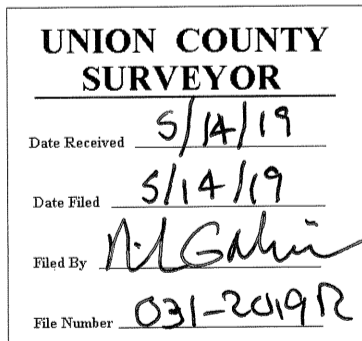 UNION COUNTY
SURVEYOR
Date Received 5/14/19
Date Filed 5/14/19
Filed By
File Number 031-2019R